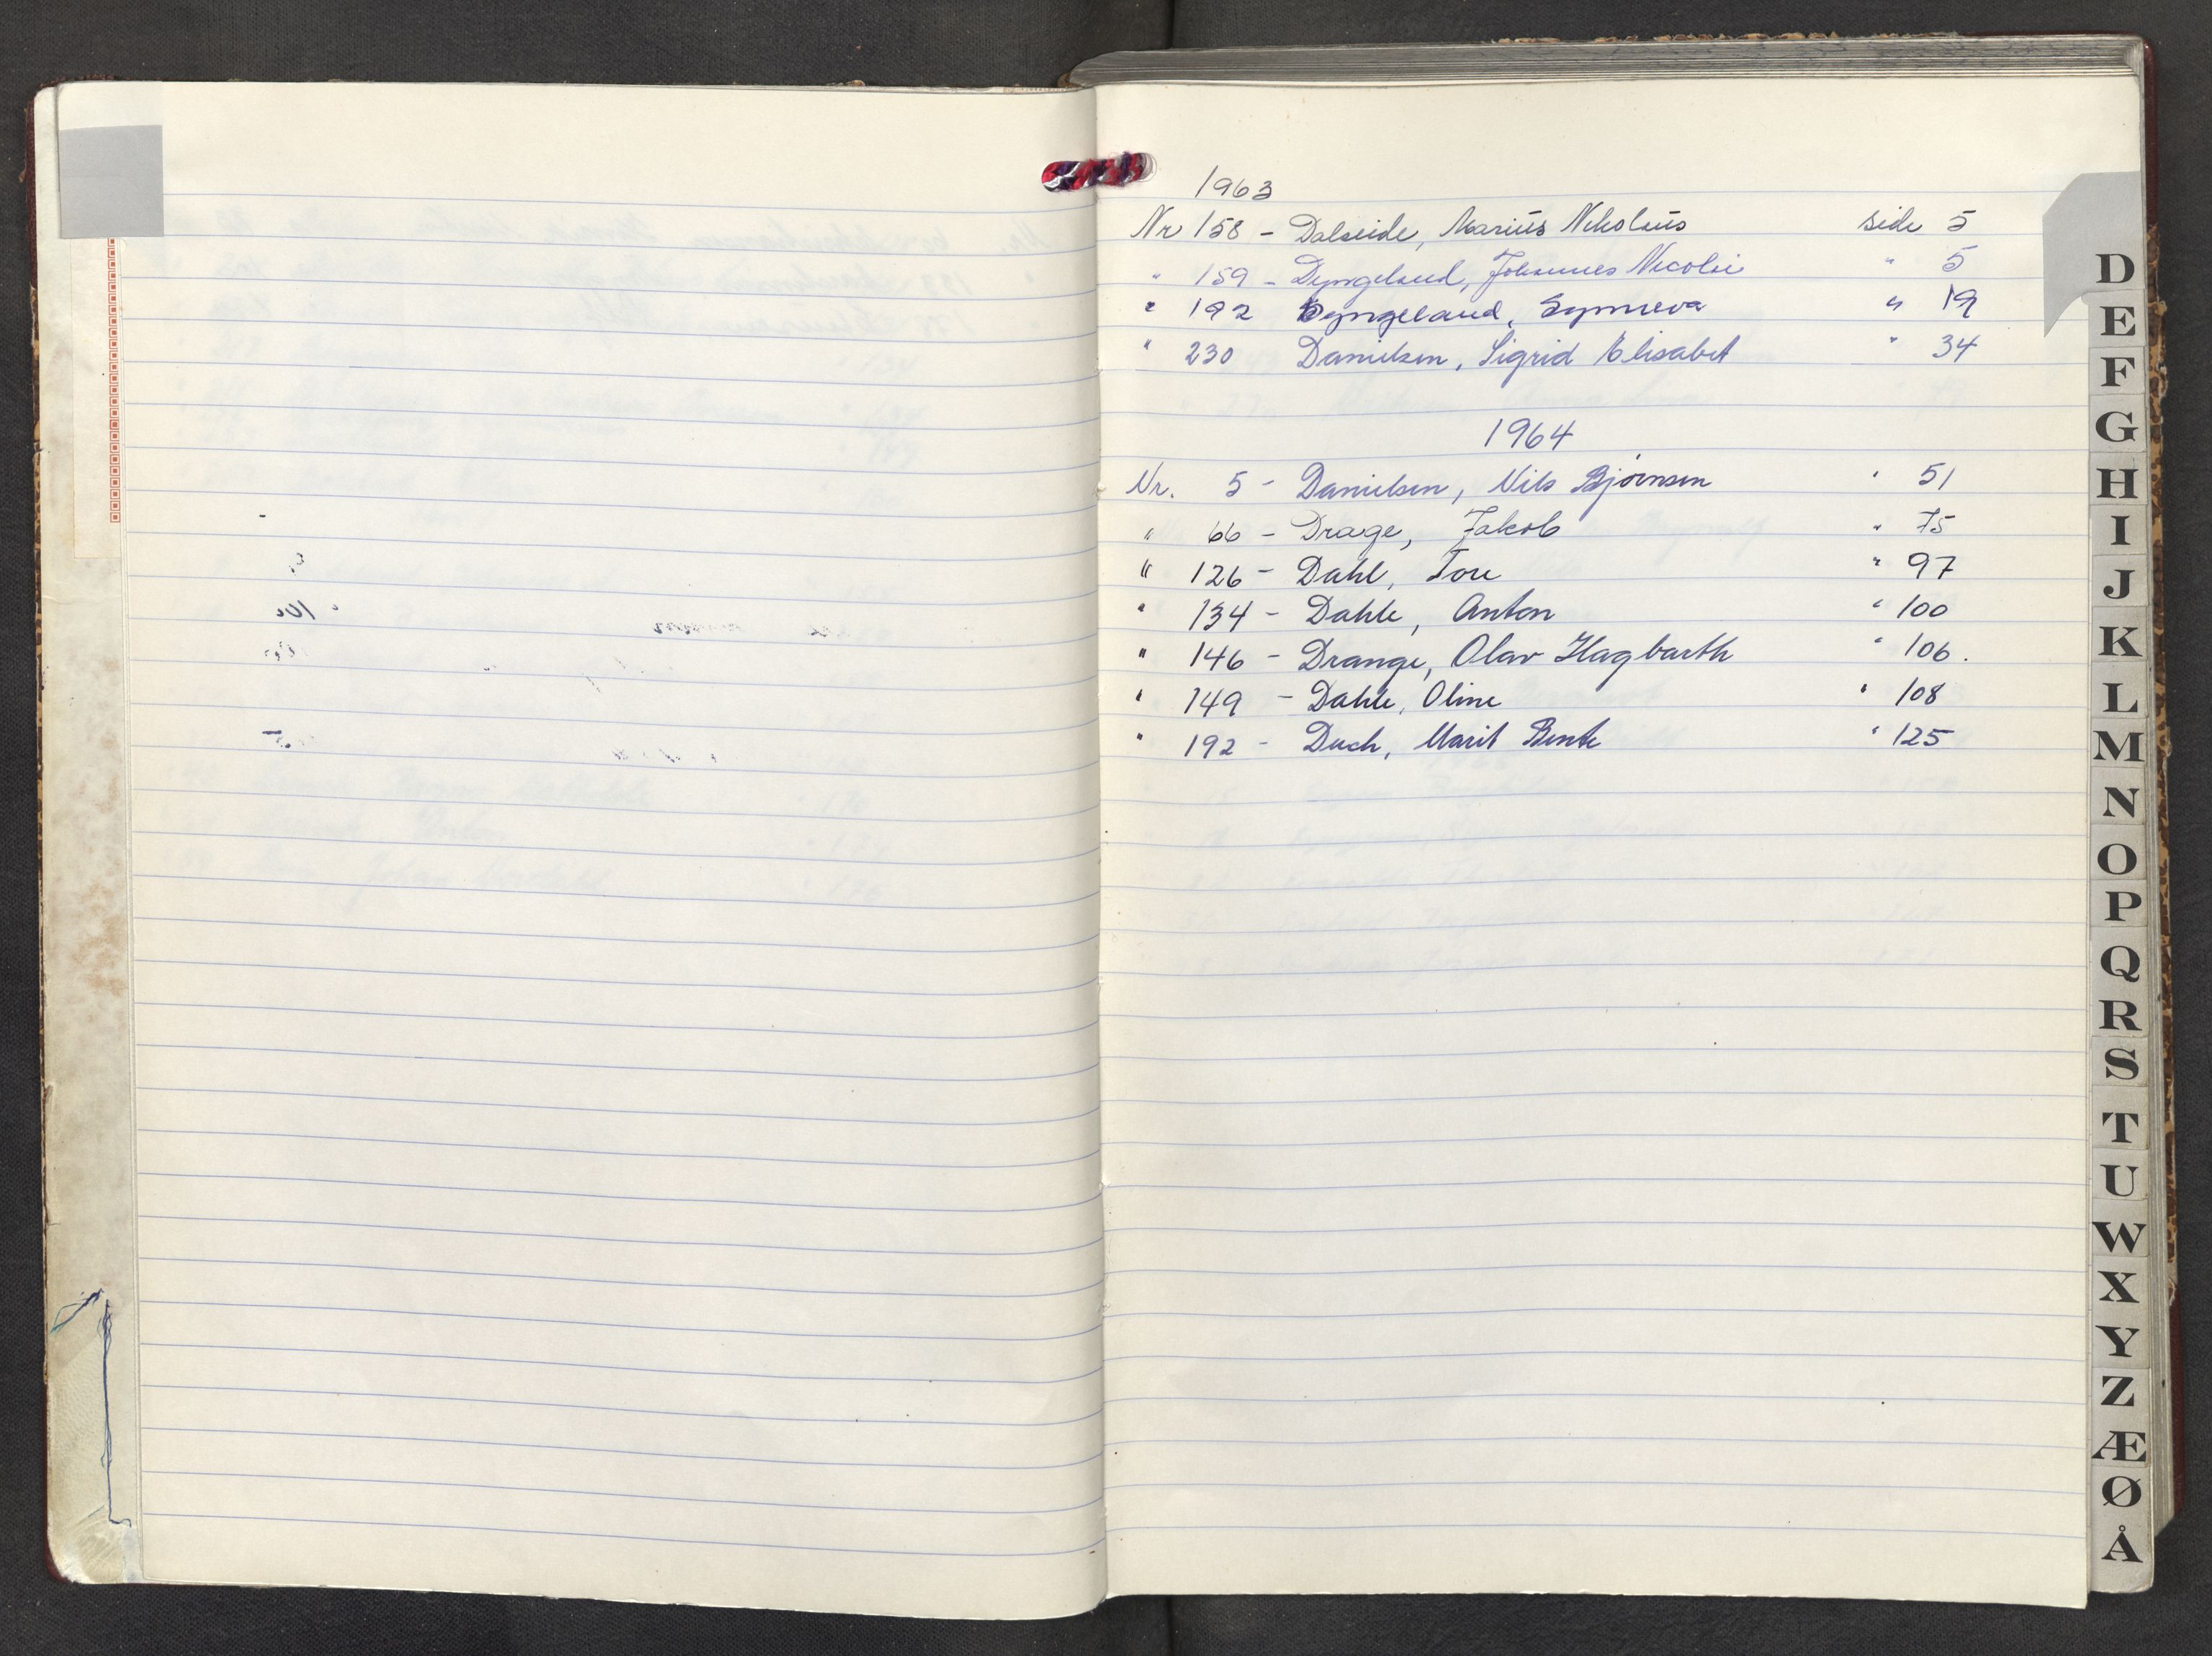 1963
Nr 158 - Dalseide, Marius Nikolaus side 5
" 159 - Dyngeland, Johannes Nicolai " 5
" 192 Dyngeland, Synneva " 19
" 230 Danielsen, Sigrid Elisabet " 34
1964
Nr. 5 - Danielsen, Nils Bjørnsen " 51
" 66 - Drage, Jakob " 75
" 126 - Dahl, Tore " 97
" 134 - Dahle, Anton " 100
" 146 - Drange, Olav Hagbarth " 106.
" 149 - Dahle, Oline " 108
" 192 - Duch, Marit Bente " 125
D
E
F
G
H
I
J
K
L
M
N
O
P
Q
R
S
T
U
W
X
Y
Z
Æ
Ø
Å